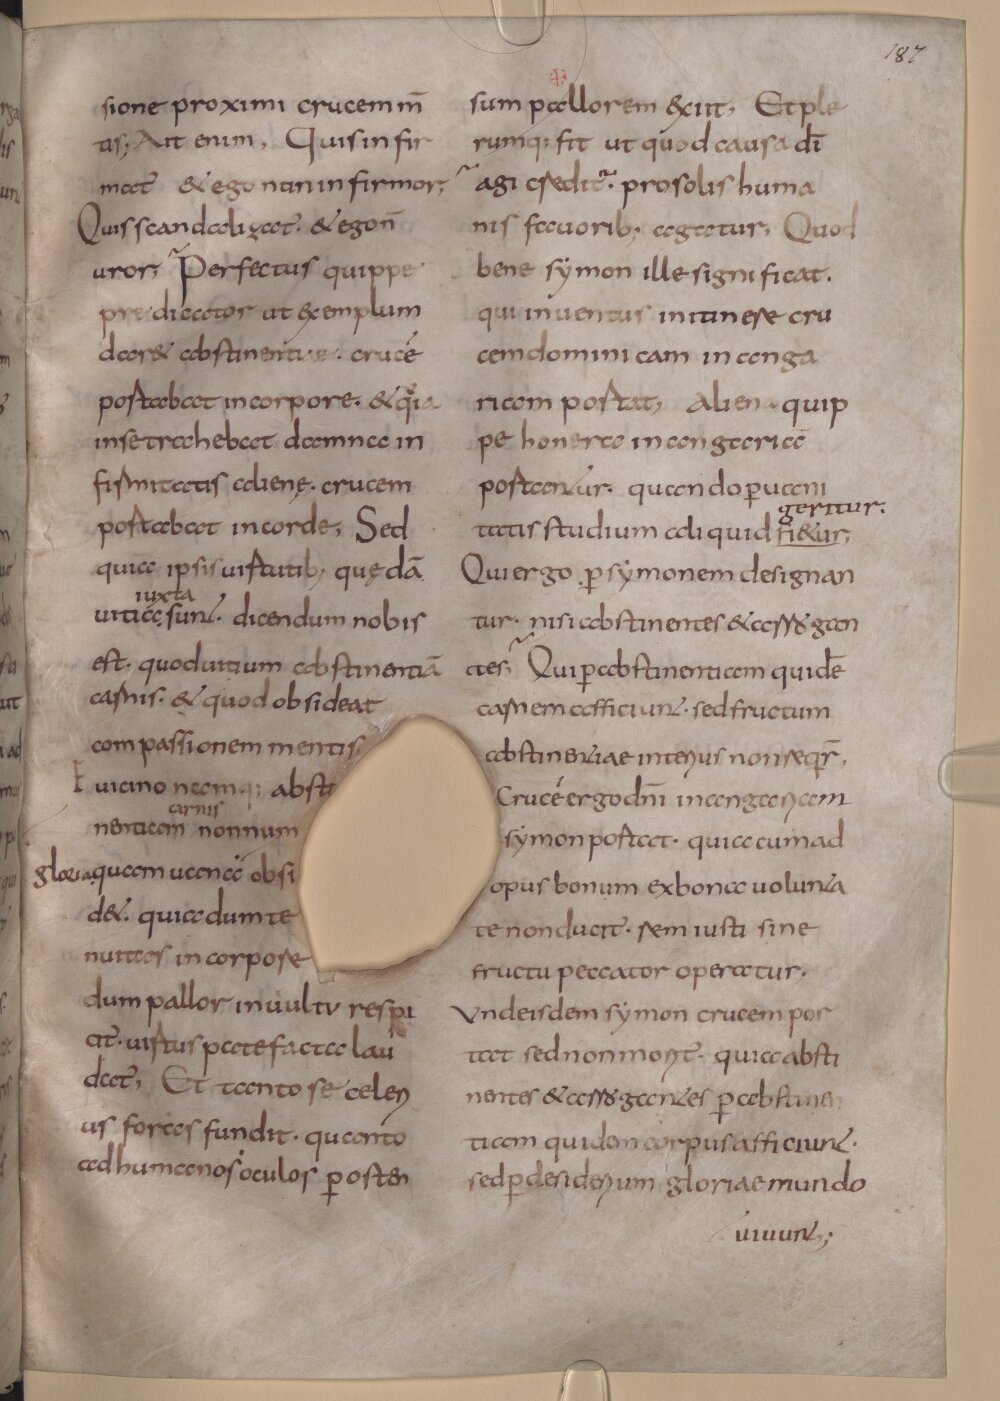 187
sione proximi crucem m̄
tis; Ait enim, Quis infir
mat & ego non infirmor;
Quis scandalizat. & ego n̄
uror; Perfectus quippe
predicator ut exemplum
dar& abstinentiae. crucē
portabat in corpore. & quia
in se trahebat damna in
firmitatis alienę. crucem
portabat in corde; Sed
quia ipsis uirtutib; quędā
iuxta
uitia sunt. dicendum nobis
est. quod uitium abstinentiā
carnis. & quod obsideat
compassionem mentis
E uicino namq; absti
carnis
nentiam nonnum
gloria quam uana obsi
d&. quia dum te
nuitas in corpore
dum pallor in uultu respi
cit. uirtus patefacta lau
dat; Et tanto se celeri
us foras fundit. quanto
ad humanos oculos p osten
sum pallorem exiit; Et ple
rumq; fit ut quod causa dī
agi creditr. pro solis huma
nis fauorib; agatur; Quod
bene sẏmon ille significat.
qui inuentus in itinere cru
cem dominicam in anga
riam portat; Aliena quip
pe honera in angaria
portantur. quando p uani
geritur.
tatis studium aliquid fi&ur;
Qui ergo p sẏmonem designan
tur. nisi abstinentes & arrogan
tes; Qui p abstinentiam quidē
carnem afficiunt. sed fructum
abstinentiae interius non seqr̄;
Crucē ergo dn̄i in angariam
sẏmon portat. quia cum ad
opus bonum ex bona uolunta
te non ducit. rem iusti sine
fructu peccator operatur.
Unde isdem sẏmon crucem por
tat sed non morit. quia absti
nentes & arrogantes p abstinen
tiam quidem corpus afficiunt.
sed p desiderium gloriae mundo
uiuunt;